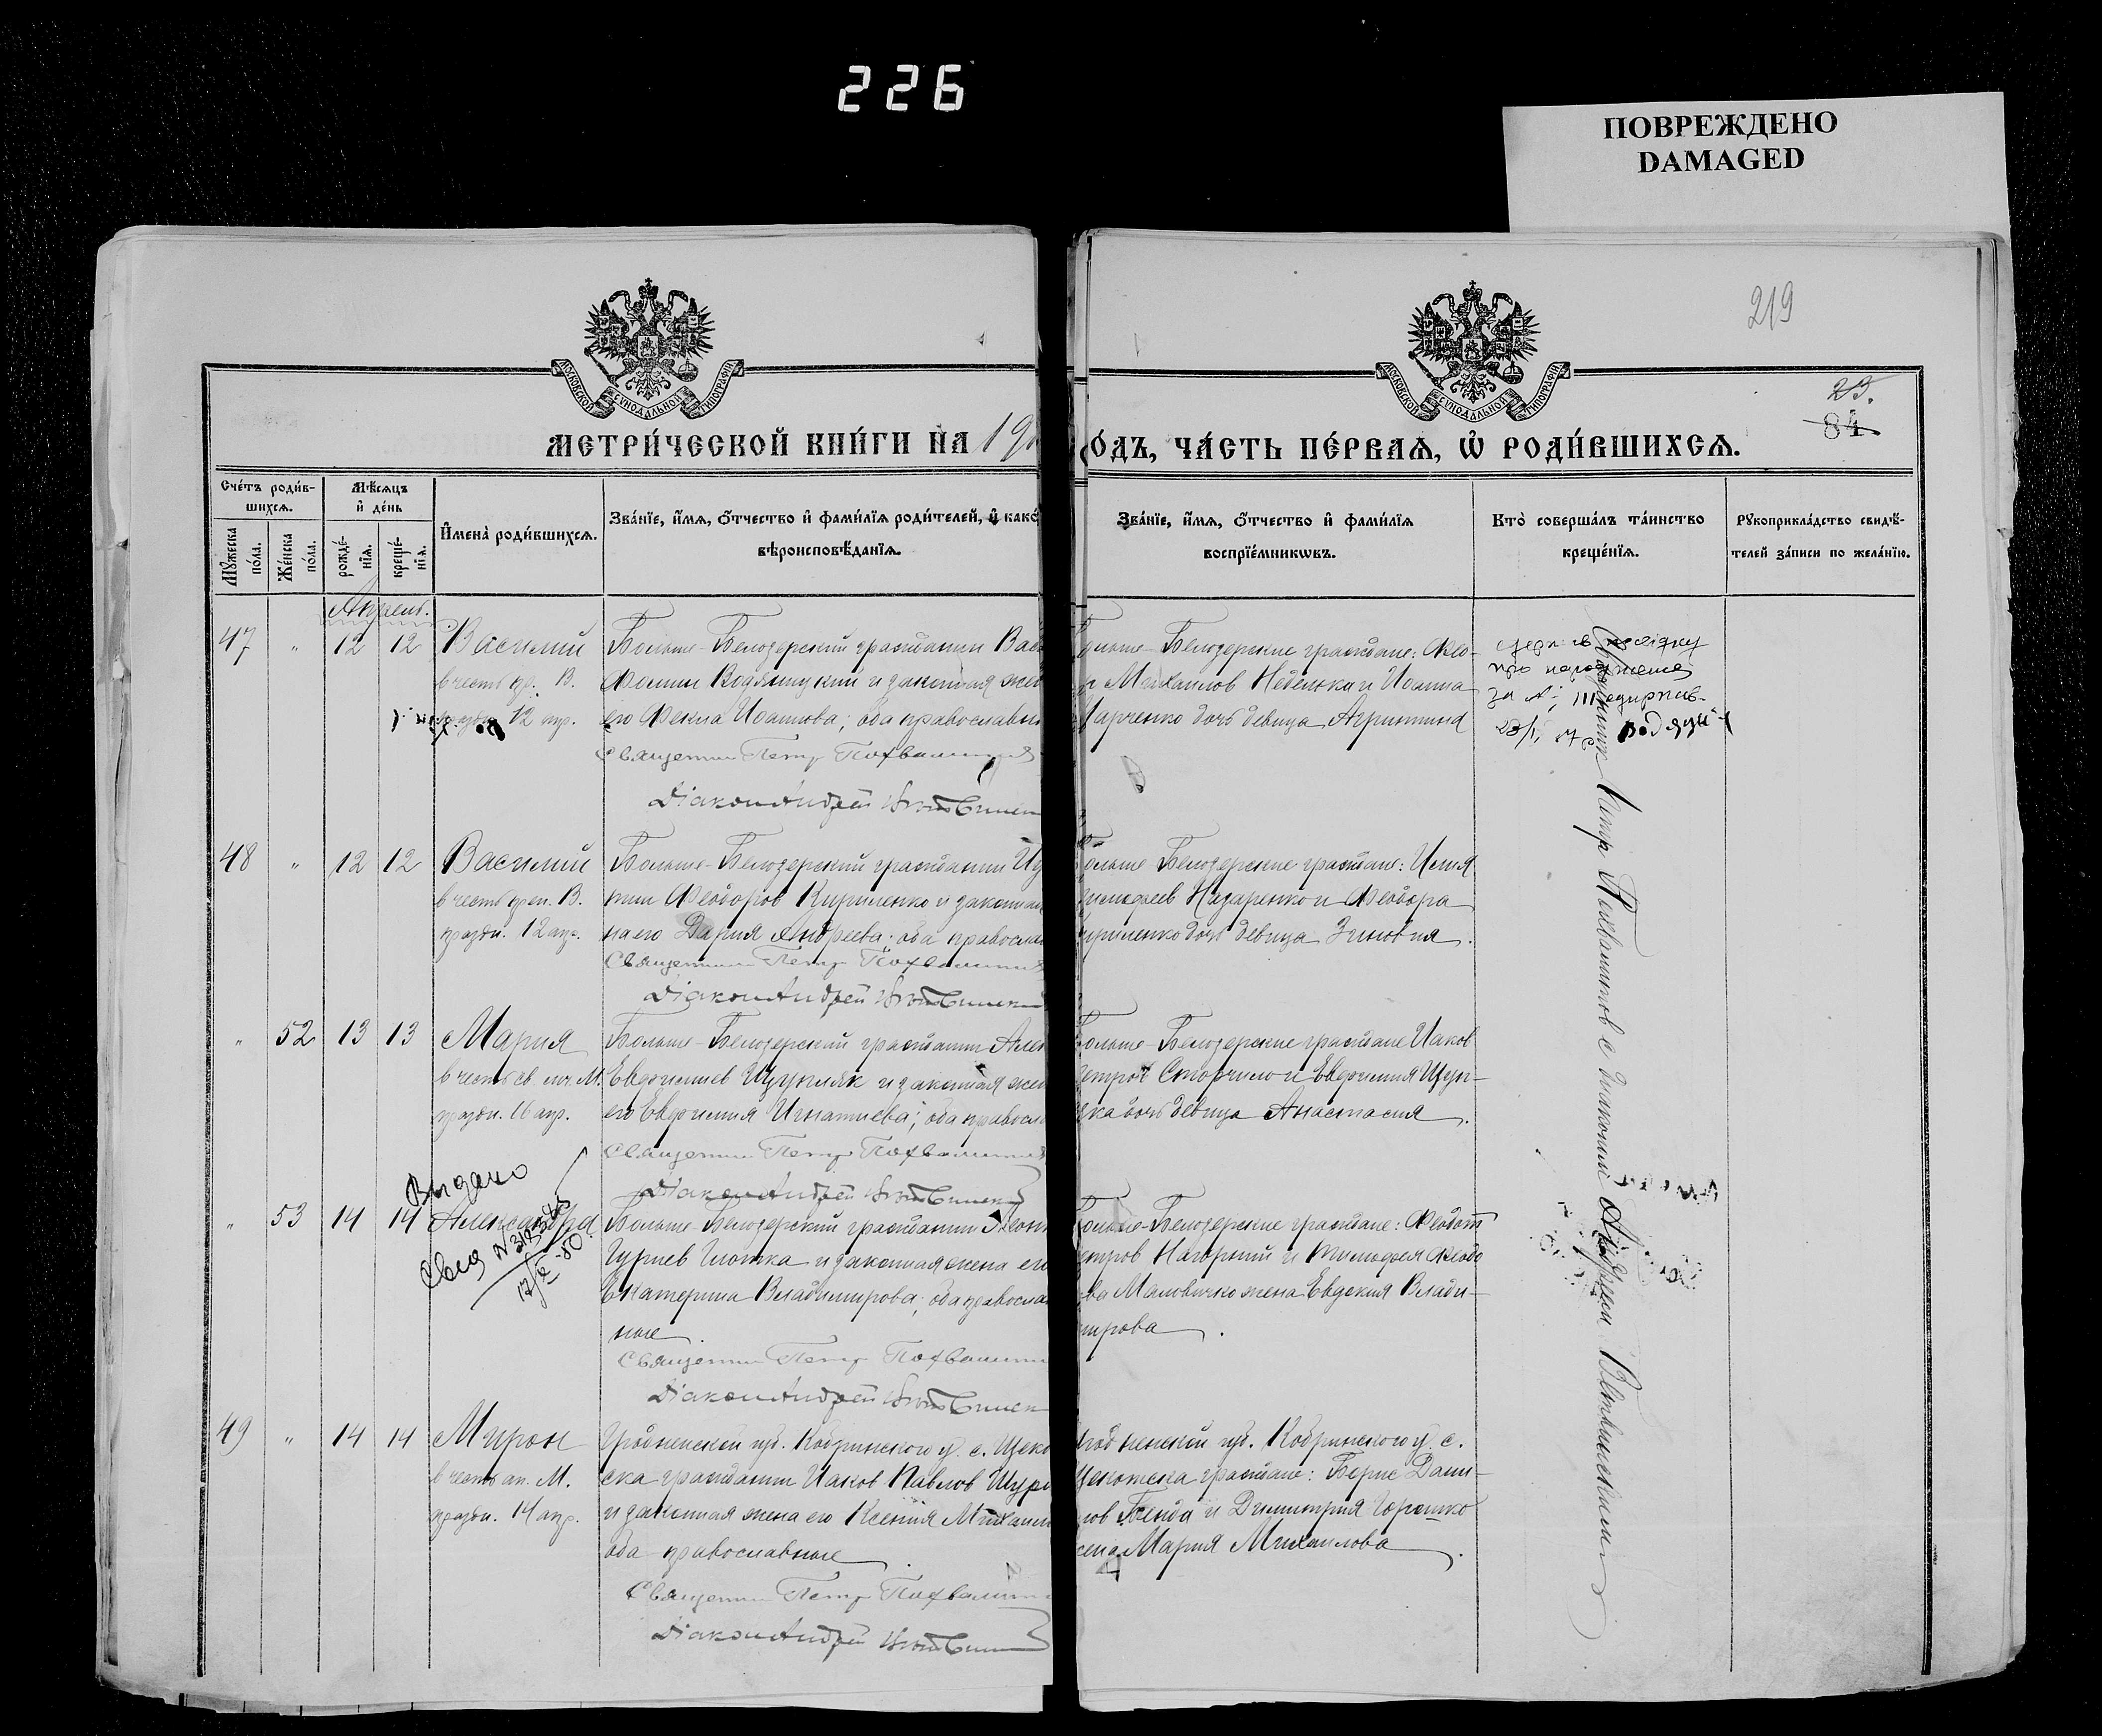 226
ПОВРЕЖДЕНО
DAMAGED
219
МОСКОВСКОЙ СѴНОДАЛЬНОЙ ТИПОГРАФІИ
МОСКОВСКОЙ СѴНОДАЛЬНОЙ ТИПОГРАФІИ
23.
84
МЕТРИ́ЧЕСКОЙ КНИ́ГИ НА 19
О́ДЪ, ЧА́СТЬ ПЕ́РВАѦ, Ѡ҆ РОДИ́ВШИХСѦ.
Сче́тъ роди́в-
шихсѧ.
Мꙋ́жеска по́ла.
Же́нска по́ла.
Мѣ́сѧцъ
и҆ де́нь
рожде́-
нїѧ.
креще́-
нїѧ.
И҆мена̀ роди́вшихсѧ.
Зва́нїе, и҆́мѧ, ѻ҆́тчество и҆ фами́лїѧ роди́телей, и҆ како́
вѣроисповѣ́данїѧ.
Зва́нїе, и҆́мѧ, ѻ҆́тчество и҆ фами́лїѧ
воспрїе́мникѡвъ.
Кто̀ соверша́лъ та́инство
креще́нїѧ.
Рꙋкоприкла́дство свидѣ́-
телей за́писи по жела́нїю.
Апрель.
47 " 12 12 Василий
в честь пр. В.
12 апр.
Больше-Белозерский гражданин Вас
Фомин Водяницкий и законная жен
его Фекла Иоаннова; оба православн
Священник Петр Похвалитов
Діакон Андрей
льше-Белозерские граждане: Фео-
р Михаилов Неделька и Иоанна
Марченко дочь девица Агрипина
про народження
за №
48 " 12 12 Василий
в честь преп. В.
праздн. 12 апр.
Больше-Белозерский гражданин Иу
тин Феодоров Кириленко и законная
на его Дария Андреева; оба правосла
Священник Петр Похвалитов
Діакон Андрей
ольше Белозерские граждане: Илия
Тимофеев Назаренко и Феодора
ириленко дочь девица Зиновия.
" 52 13 13 Мария
в честь св. муч. М.
праздн. 16 апр.
Больше-Белозерский гражданин Алек
Евфимиев Щупляк и законная жен
его Евфимия Игнатиева; оба правосл
Священник Петр Похвалитов
Діакон Андрей
ольше-Белозерские граждане Иаков
етров Сторчило и Евфимия Щуп-
яка дочь девица Анастасия.
" 53 14 14 Александра
Выдано
Больше-Белозерский гражданин Леон
Гуриев Глотка и законная жена его
Екатерина Владимирова; оба правосла
ные.
Священник Петр Похвалитов
Діакон Андрей
ольше-Белозерские граждане: Феодот
етров Нагорный и Тимофея Феодо
ва Маловичко жена Евдокия Влади-
мирова.
49 " 14 14 Мирон
в честь ап. М.
праздн. 14 апр.
Гродненской губ. Кобринского у. с. Щеко
ска гражданин Иаков Павлов Щур
и законная жена его Ксения Михаил
оба православные.
Священник Петр Похвалитов
Діакон Андрей
род ненской губ. Кобринского у. с.
граждане: Борис Дани-
лов Бенда и Димитрия Горошко
жена Мария Михаилова.
Священник Петр Похвалитов с диаконом Андреем